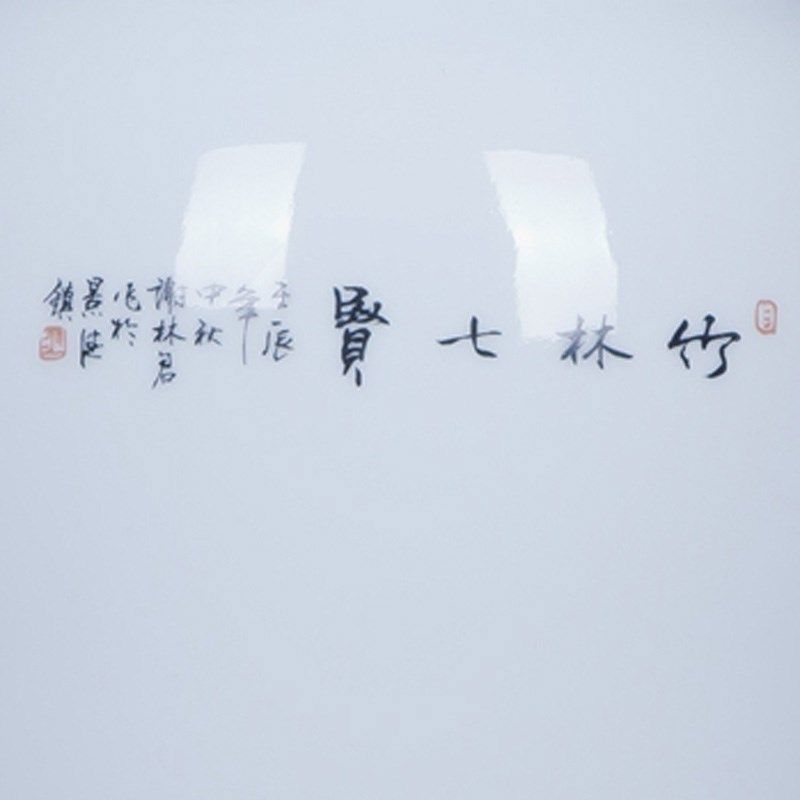 竹林七賢
壬辰
年
中秋
謝林君
作於
景德
鎮